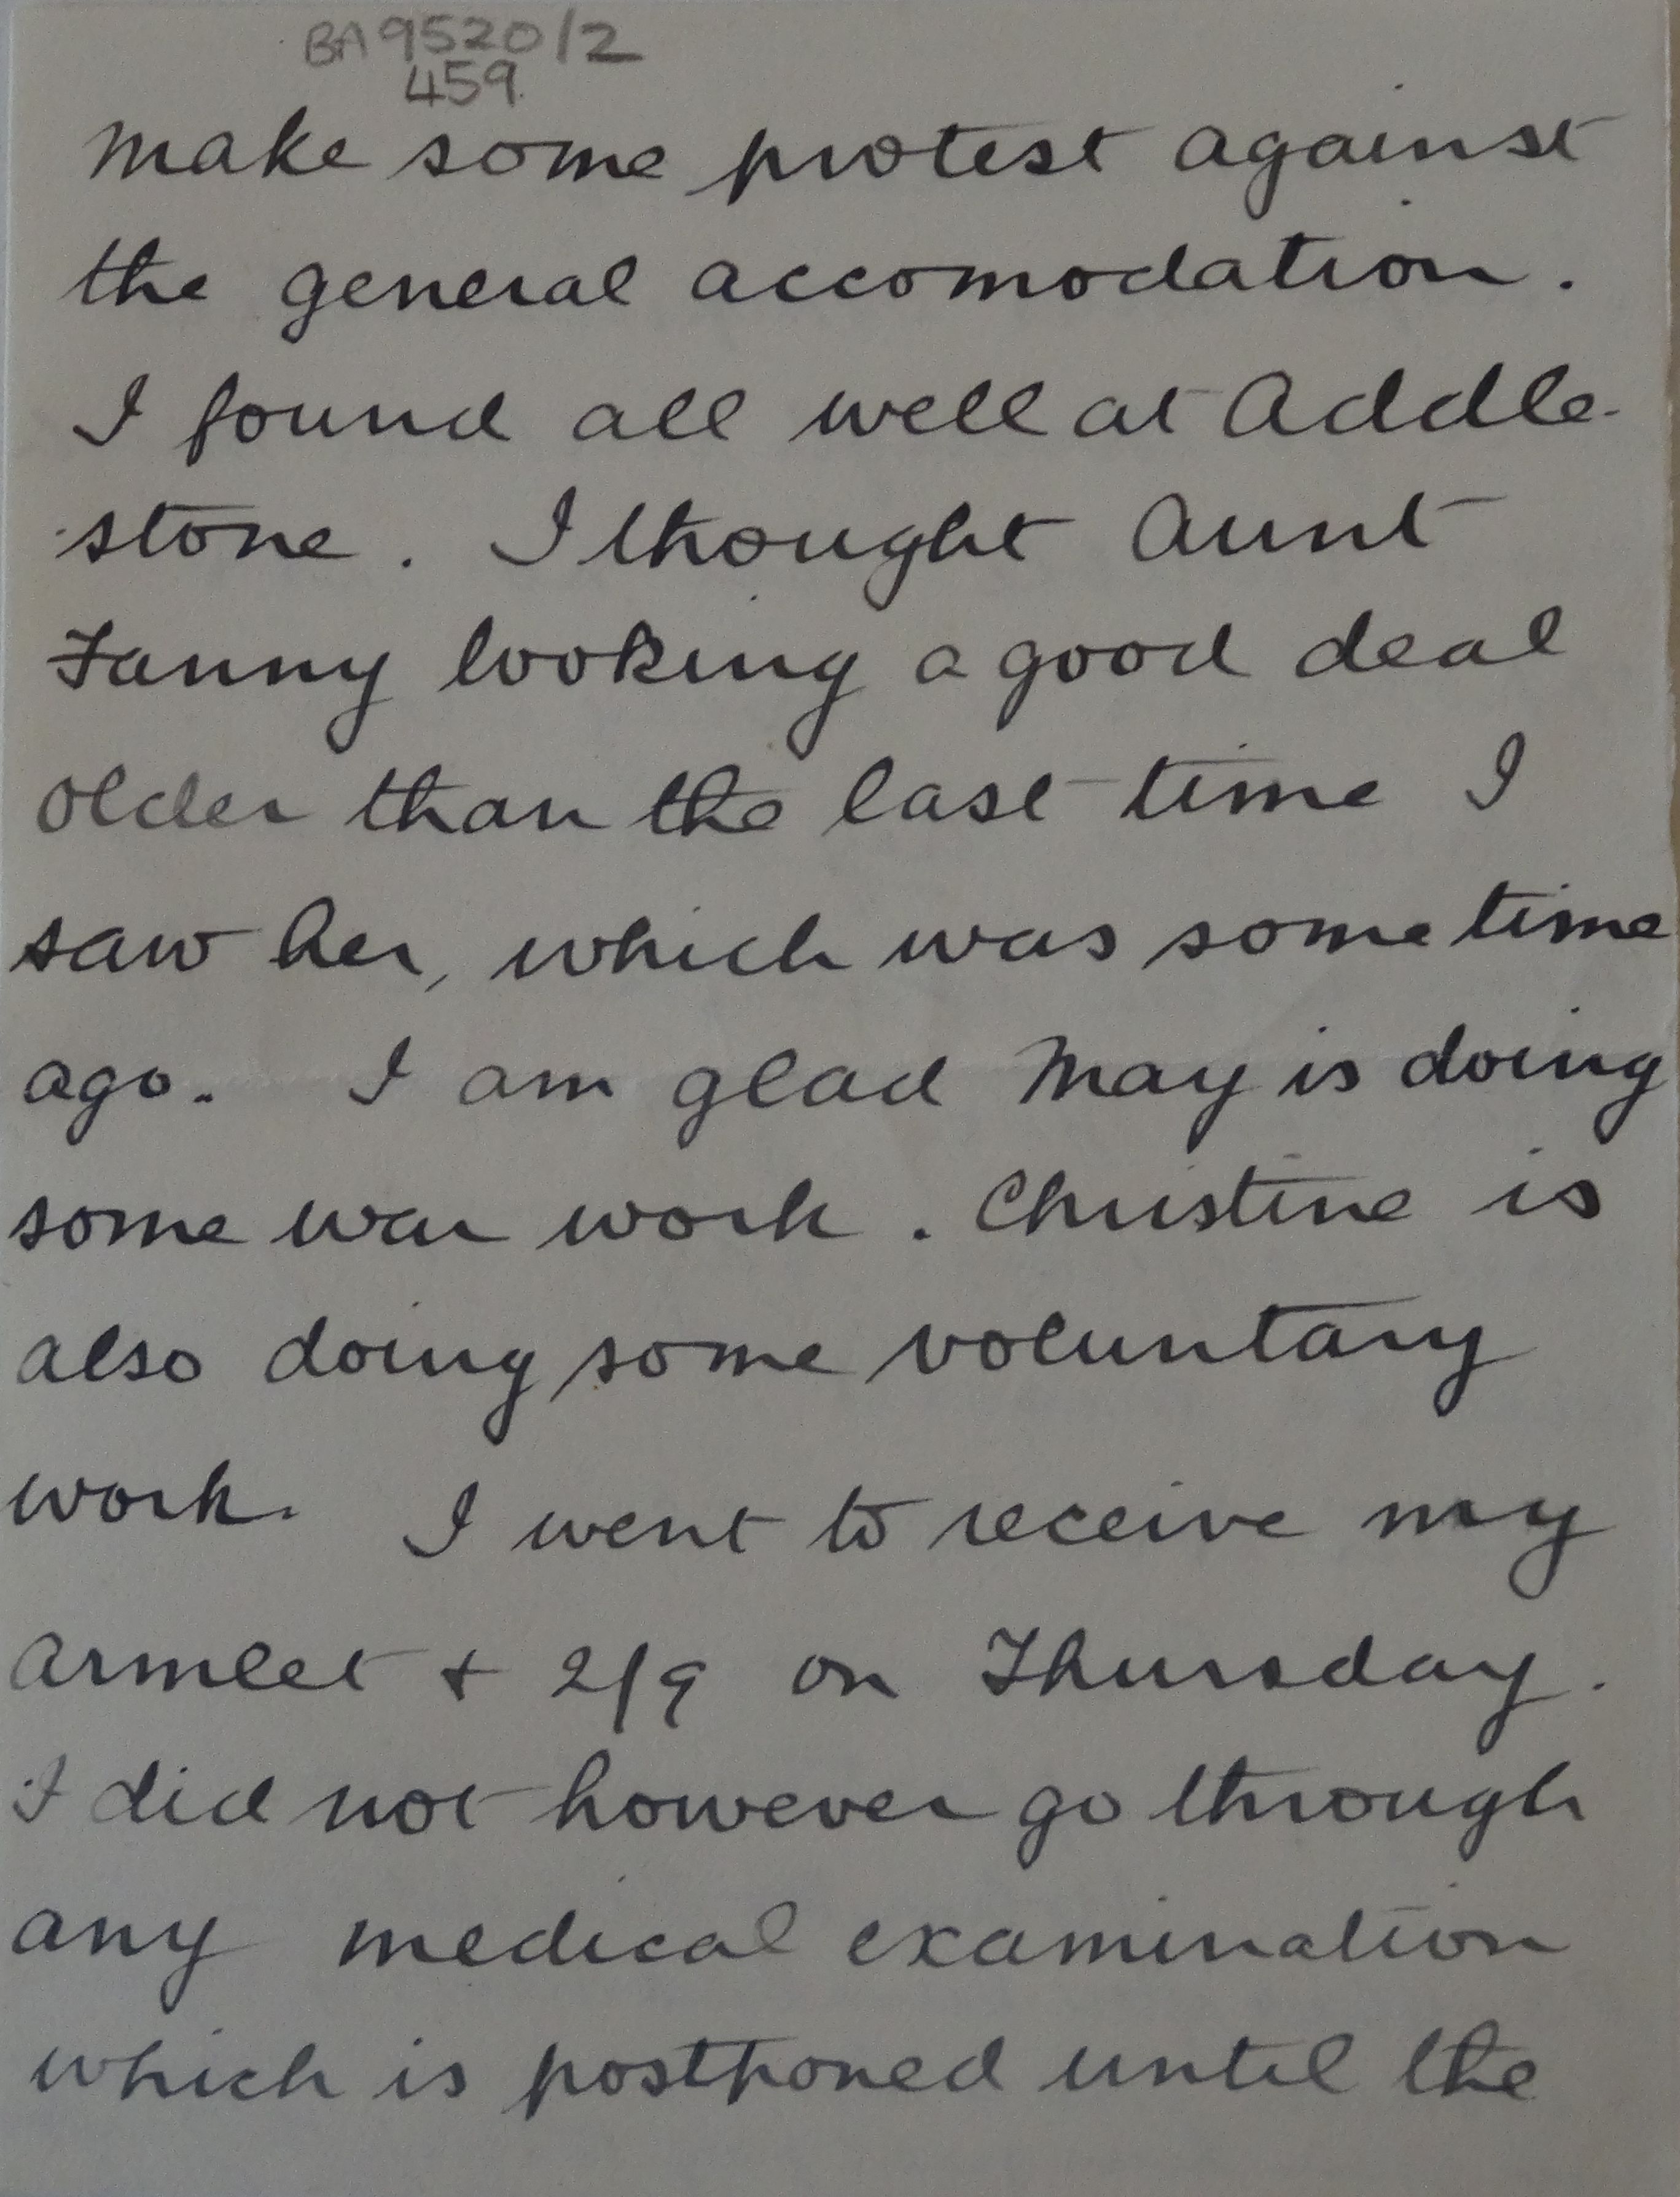 BA9520/2
459.
make some protest against
the general accomodation.
I found all well at Addle-
stone. I thought Aunt
Fanny looking a good deal
older than the last time I
saw her, which was some time
ago. I am glad May is doing
some war work. Christine is
also doing some voluntary
work. I went to receive my
armlet + 2/9 on Thursday.
I did not however go through
any medical examination
which is postponed until the